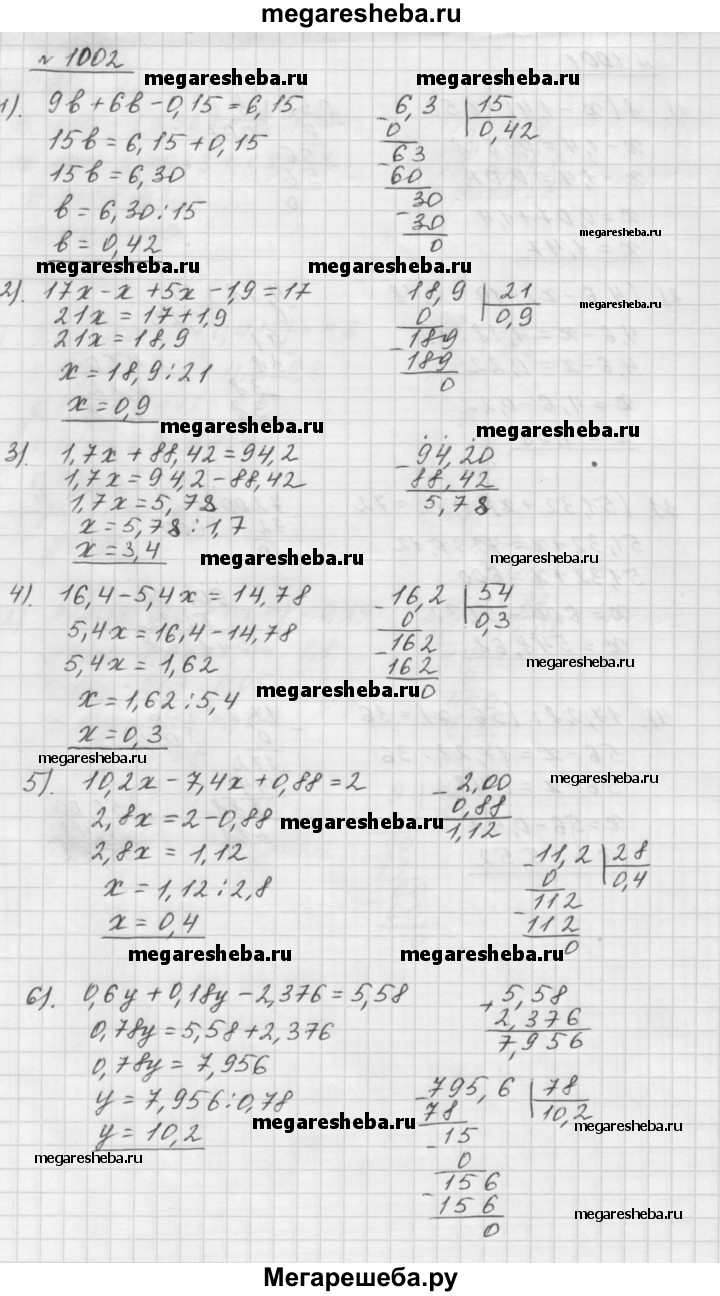 megaresheba.ru
№ 1002
megaresheba.ru megaresheba.ru
1). 9в + 6в - 0,15 = 6,15
15в = 6,15 + 0,15
15в = 6,30
в = 6,30 : 15
в = 0,42
- 6,3 | 15
0 | 0,42
- 63
60
- 30
30
0
megaresheba.ru
megaresheba.ru megaresheba.ru
2). 17x - x + 5x - 1,9 = 17
21x = 17 + 1,9
21x = 18,9
x = 18,9 : 21
x = 0,9
- 18,9 | 21
0 | 0,9
- 189
189
0
megaresheba.ru
megaresheba.ru megaresheba.ru
3). 1,7x + 88,42 = 94,2
1,7x = 94,2 - 88,42
1,7x = 5,78
x = 5,78 : 1,7
x = 3,4
- 94,20
88,42
5,78
megaresheba.ru megaresheba.ru
4). 16,4 - 5,4x = 14,78
5,4x = 16,4 - 14,78
5,4x = 1,62
x = 1,62 : 5,4
x = 0,3
- 16,2 | 54
0 | 0,3
- 162
162
0
megaresheba.ru
megaresheba.ru
megaresheba.ru
5). 10,2x - 7,4x + 0,88 = 2
2,8x = 2 - 0,88
2,8x = 1,12
x = 1,12 : 2,8
x = 0,4
- 2,00
0,88
1,12
- 11,2 | 28
0 | 0,4
- 112
112
0
megaresheba.ru
megaresheba.ru
megaresheba.ru megaresheba.ru
6). 0,6y + 0,18y - 2,376 = 5,58
0,78y = 5,58 + 2,376
0,78y = 7,956
y = 7,956 : 0,78
y = 10,2
+ 5,58
2,376
7,956
- 795,6 | 78
78 | 10,2
- 15
0
- 156
156
0
megaresheba.ru megaresheba.ru
megaresheba.ru
megaresheba.ru
Мегарешеба.ру